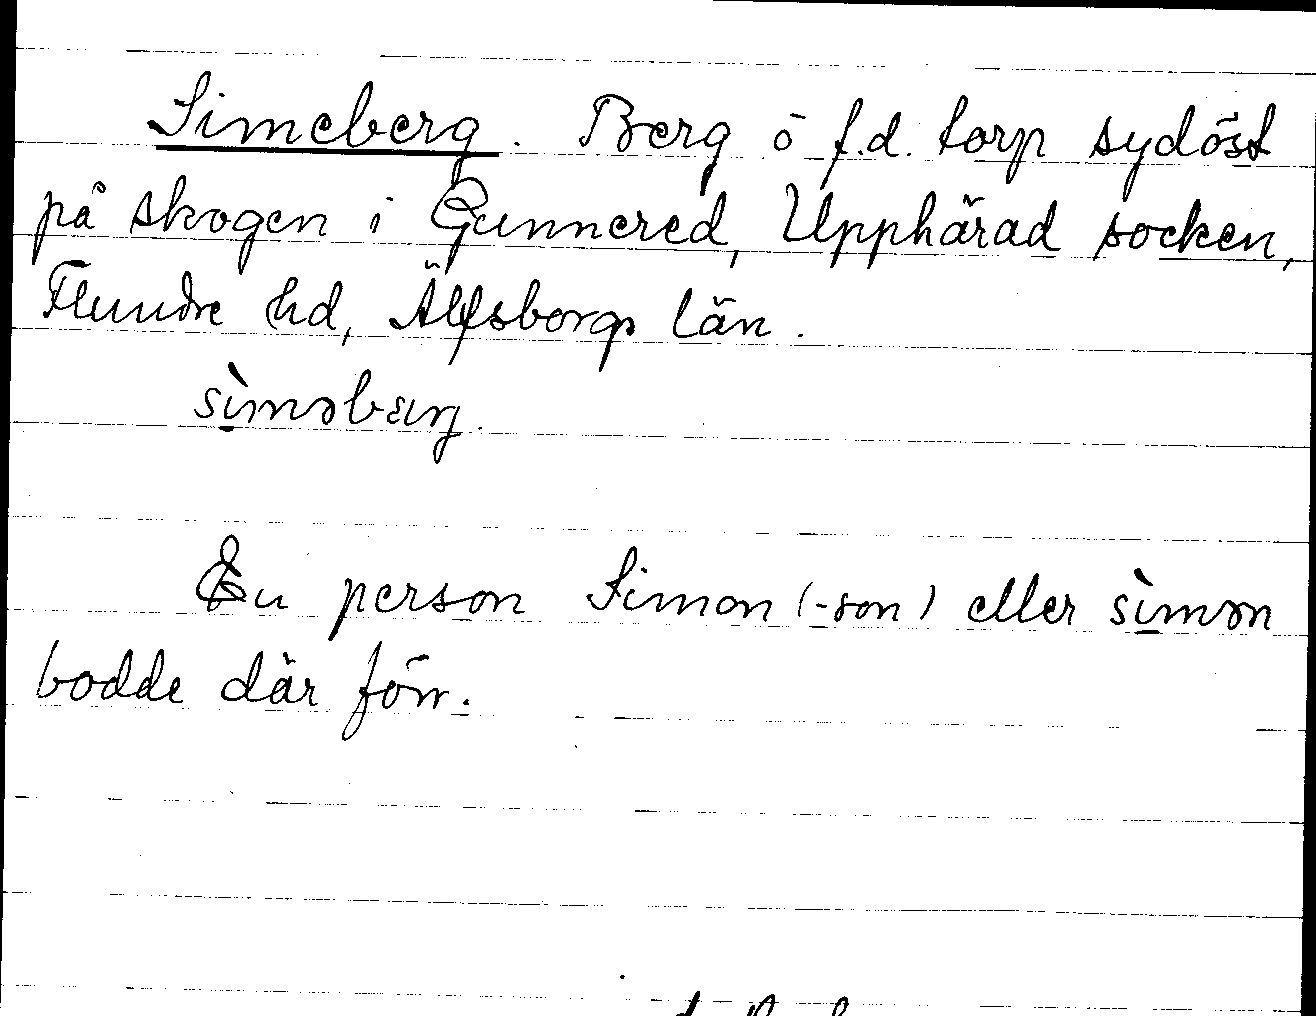 Simeberg. Berg ō f.d. torp sydöst
på skogen i Gunnered, Upphärad socken,
Flundre hd, Älfsborgs län.
sı̀məbærj.
En person Simon (-son) eller sı̀mɔn
bodde där förr.